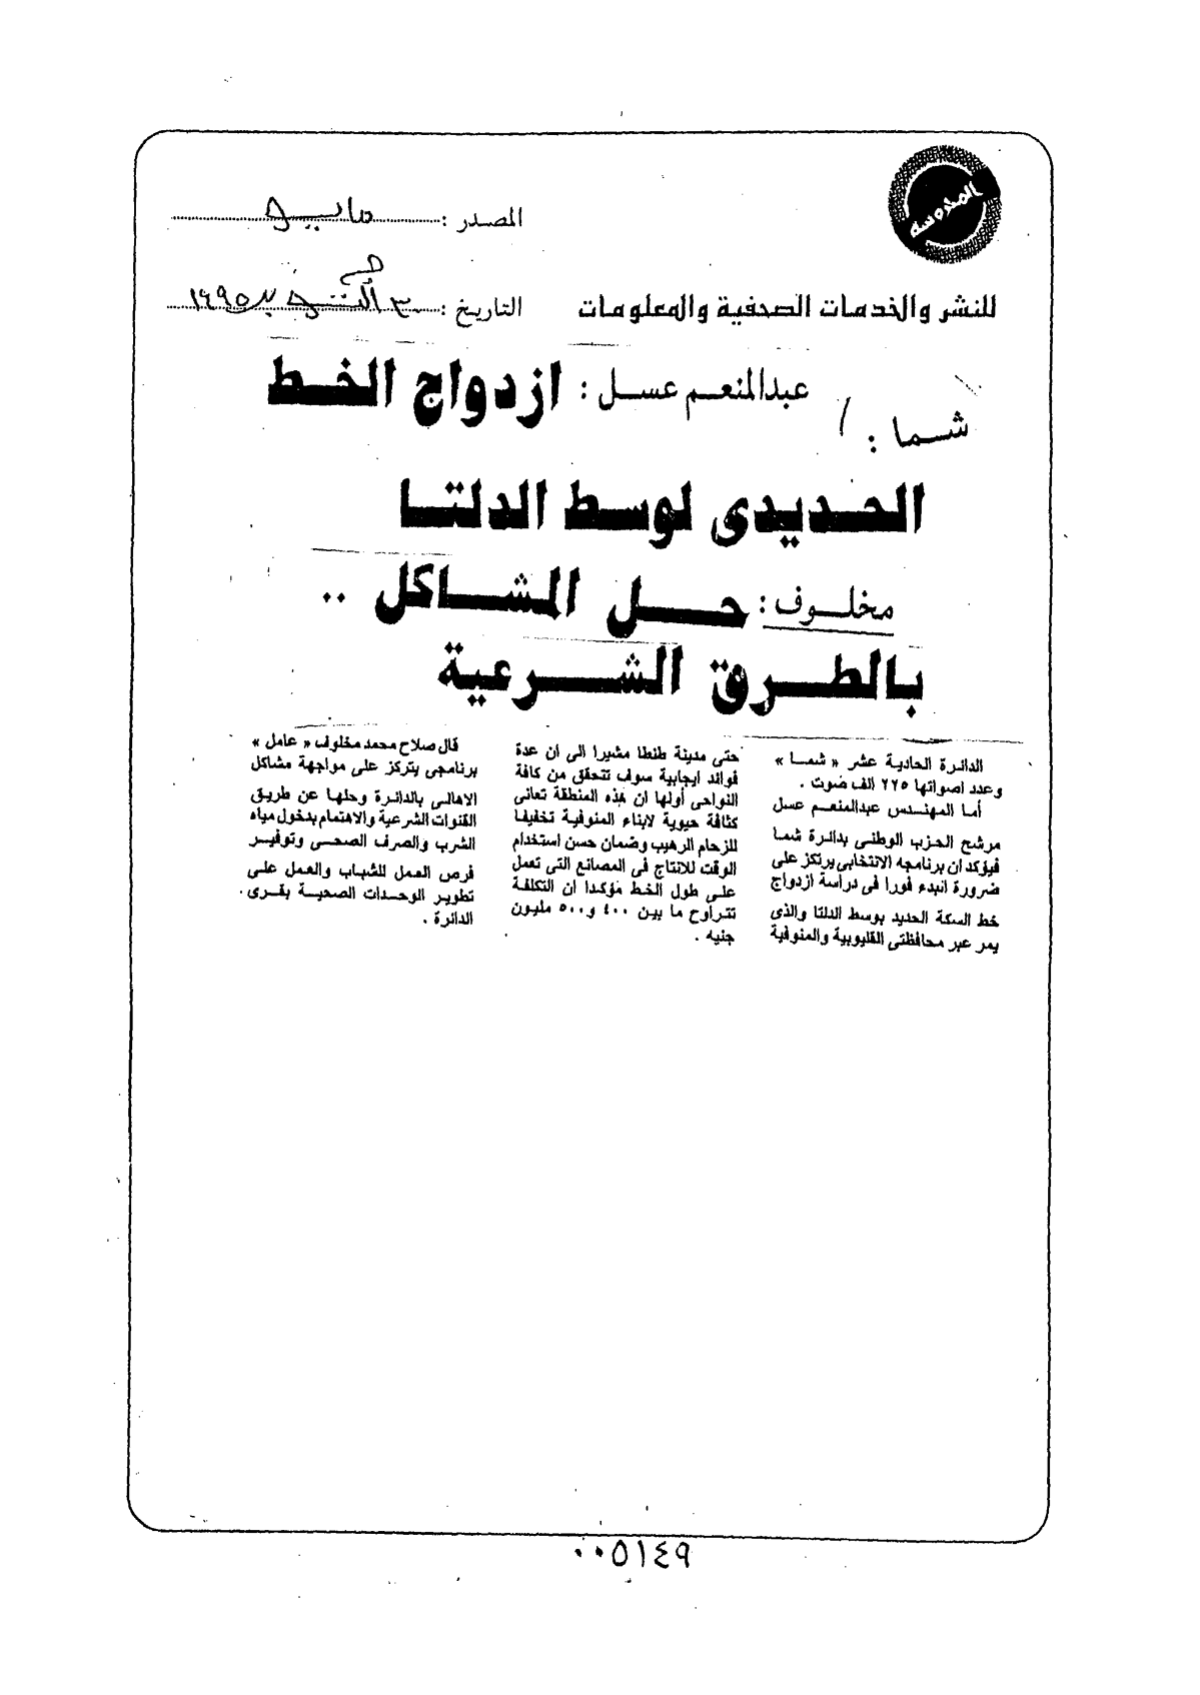 المحروسة
المصدر : مايو
للنشر والخدمات الصحفية والمعلومات
التاريخ : ٣٠ أكتوبر ١٩٩٥
شما :
عبدالمنعم عسل : ازدواج الخط
الحديدى لوسط الدلتا
مخلوف : حل المشاكل ..
بالطرق الشرعية
الدائرة الحادية عشر « شما »
وعدد اصواتها ٢٢٥ الف صوت .
أما المهندس عبدالمنعم عسل
مرشح الحزب الوطنى بدائرة شما
فيؤكد ان برنامجه الانتخابى يرتكز على
ضرورة البدء فورا فى دراسة ازدواج
خط السكة الحديد بوسط الدلتا والذى
يمر عبر محافظتى القليوبية والمنوفية
حتى مدينة طنطا مشيرا الى ان عدة
فوائد ايجابية سوف تتحقق من كافة
النواحى أولها ان هذه المنطقة تعانى
كثافة حيوية لابناء المنوفية تخفيفا
للزحام الرهيب وضمان حسن استخدام
الوقت للانتاج فى المصانع التى تعمل
على طول الخط مؤكدا ان التكلفة
تتراوح ما بين ٤٠٠ و٥٠٠ مليون
جنيه .
قال صلاح محمد مخلوف « عامل »
برنامجى يتركز على مواجهة مشاكل
الاهالى بالدائرة وحلها عن طريق
القنوات الشرعية والاهتمام بدخول مياه
الشرب والصرف الصحى وتوفير
فرص العمل للشباب والعمل على
تطوير الوحدات الصحية بقرى
الدائرة .
٠٠٥١٤٩